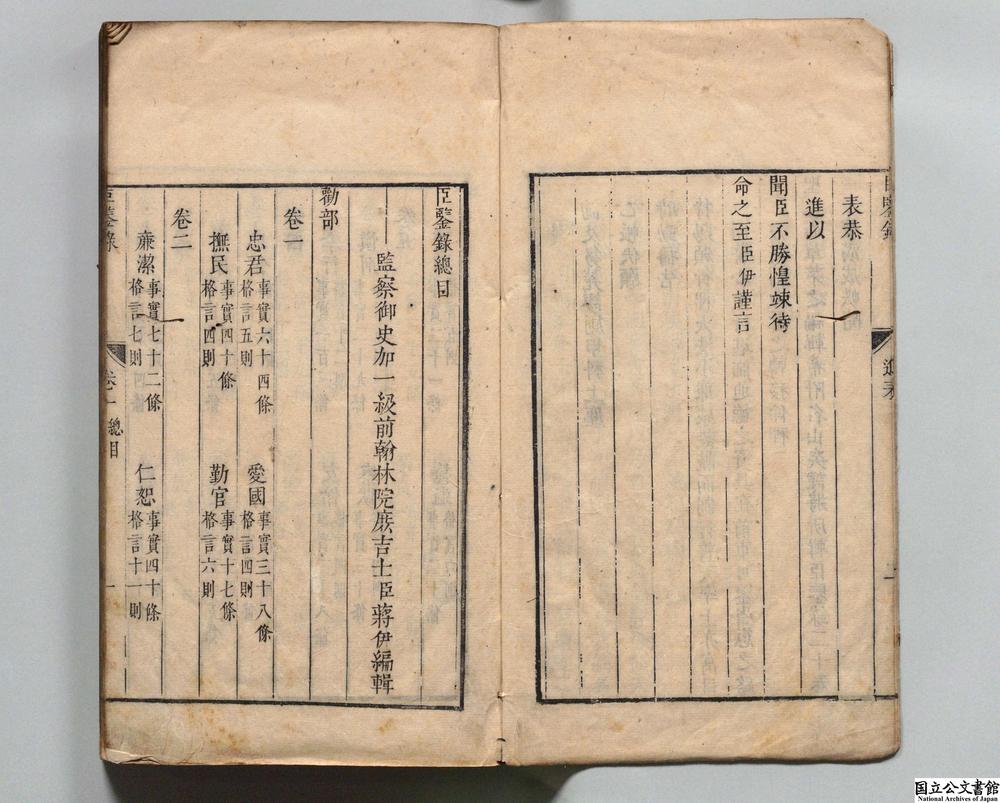 表恭
進以
聞臣不勝惶竦待
命之至臣伊謹言
進表
二
臣鑒錄總目
監察御史加一級前翰林院庶吉士臣蔣伊編輯
勸部
卷一
忠君 事實六十四條 格言五則 愛國 事實三十八條 格言四則
撫民 事實四十條 格言四則 勤官 事實十七條 格言六則
卷二
亷潔 事實七十二條 格言七則 仁恕 事實四十條 格言十一則
臣鑒錄
卷一 總目
一
国立公文書館
National Archives of Japan